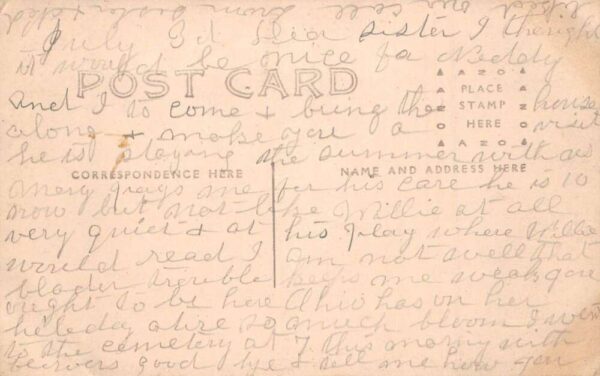 July 3d dear sister I thought
it would be nice fa Neddy
POST CARD
AZO
PLACE
STAMP
HERE
AZO
and I to come & bring the house
along & make you a visit
he is staying the summer with us
CORRESPONDENCE HERE
NAME AND ADDRESS HERE
mery pays me for his care he is 10
now but not like Willie at all
very quiet & at his play where Willie
would read I am not well that
blader trouble keeps me weak you
ought to be here Ohio has on her
holeday atire so much bloom I went
to the cemetery at 7 this morny with
good bye & tell me how you
are all from sister